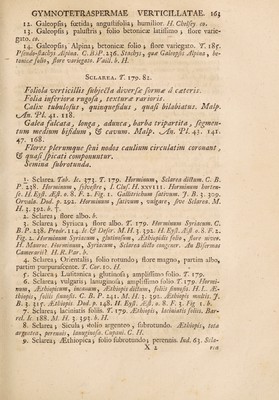 GYMNOTETRASPERMAE VERTICILLATAE. 163
12. Galeopsis; fœtida; angustifolia; humilior. H. Chelsey co.
13. Galeopsis; palustris; folio betonicæ latissimo; flore varie-
gato. co.
14. Galeopsis; Alpina; betonicæ folio; flore variegato. T. 185.
Pseudo-stachys Alpina. C. B. P. 236. Stachys, quæ Galeopsis Alpina, be-
tonicæ folio, flore variegato. Vaill. b. H.
SCLAREA. T. 179. 82.
Foliola verticillis subjecta diversæ formæ à cæteris.
Folia inferiora rugosa, texturæ rarioris.
Calix tubulosus, quinquefidus, quasi bilabiatus. Malp.
An. Pl. 41. 118.
Galea falcata, longa, adunca, barba tripartita, segmen-
tum medium bifidum, & cavum. Malp. An. Pl. 45. 141.
47. 168.
Flores plerumque seni nodos caulium circulatim coronant,
& quasi spicati componuntur.
Semina subrotunda.
1. Sclarea. Tab. Ic. 273. T. 179. Horminum, Sclarea dictum. C. B.
P. 238. Horminum, sylvestre, 1. Clus. H. XXVIII. Horminum horten-
se. H. Eyst. Æst. o. 8. F. 2. Fig. 1. Gallitrichum sativum. J. B. 3. 309.
Orvala. Dod. p. 292. Horminum, sativum, vulgare, sive Sclarea. M.
H. 3. 392. b. †.
2. Sclarea; flore albo. b.
3. Sclarea; Syriaca; flore albo. T. 179. Horminum Syriacum. C.
B. P. 238. Prodr. 114. Ic & Descr. M. H. 3. 392. H. Eyst. Æst o. 8. F. 2.
Fig. 2. Horminum Syriacum, glutinosum, Æthiopidis folio, flore niveo.
H. Mauroc. Horminum, Syriacum, Sclarea dicta congener. An Biforme
Camerarii? H. R. Par. b.
4. Sclarea; Orientalis; folio rotundo; flore magno, partim albo,
partim purpurascente. T. Cor. 10. H.
5. Sclarea; Lusitanica; glutinosa; amplissimo folio. T. 179.
6. Sclarea; vulgaris; lanuginosa; amplissimo folio T. 179. Hormi-
num, Æthiopicum, incanum, Æthiopis dictum, foliis sinuosis. H. L. Æ-
thiopis, foliis sinuosis. C. B. P. 241. M. H. 3. 392. Æthiopis multis. J.
B. 3. 315. Æthiopis. Dod. p. 148. H. Eyst. Æst. o. 8. F. 3. Fig. 1. b.
7. Sclarea; laciniatis foliis. T. 179. Æthiopis, laciniatis foliis. Bar-
rel. Ic. 188. M. H. 3. 393. b. H.
8. Sclarea; Sicula; stolis argenteo, subrotundo. Æthiopis, tota
argentea, perennis, lanuginosa. Cupani. C. H.
9. Sclarea; Æthiopica; folio subrotundo; perennis. Ind. 63. Scla-
X 2 rea